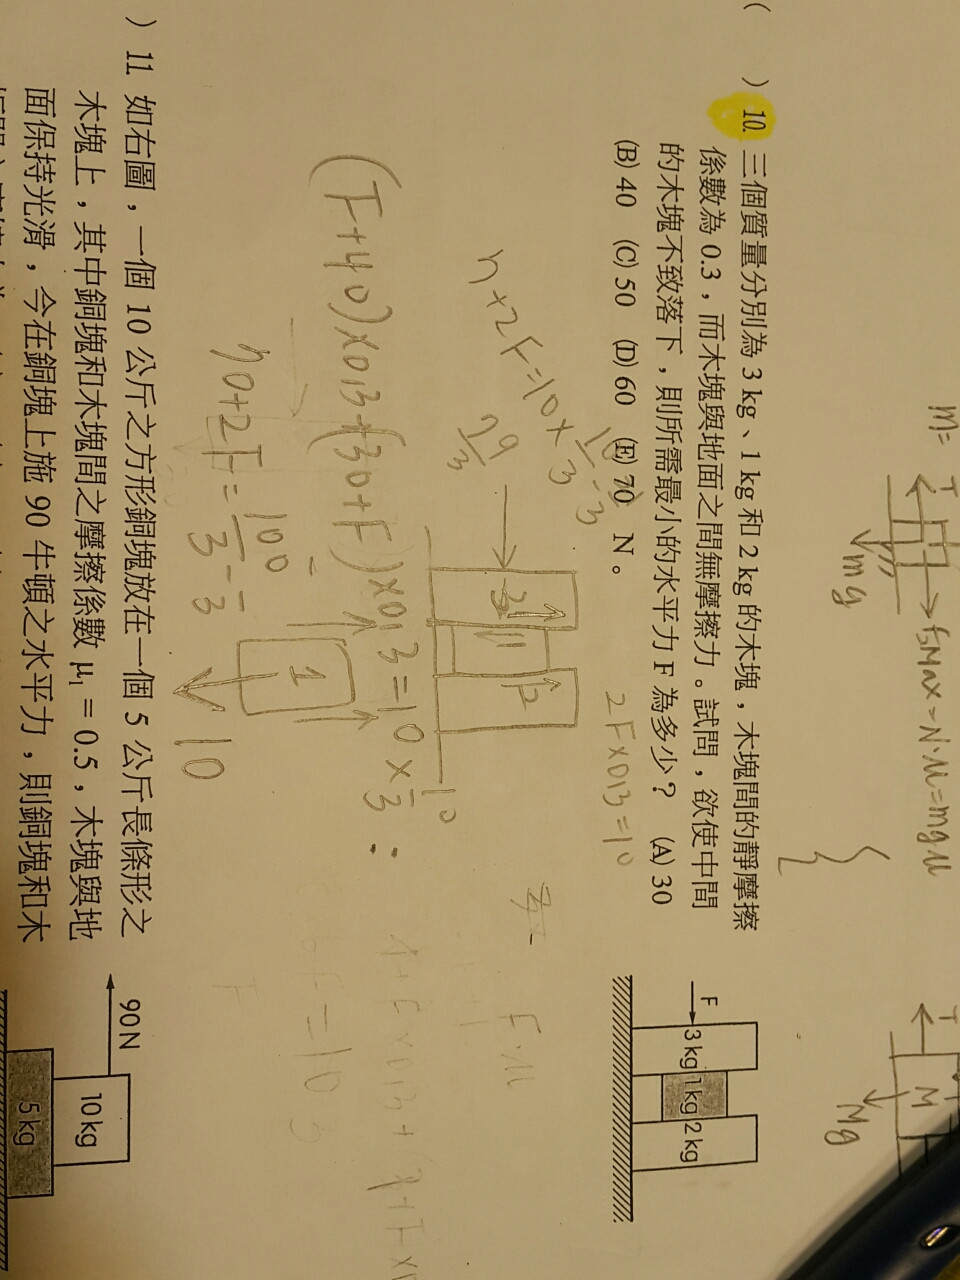 M=
T
fsMax=N·μ=mgμ
mg
T
M
Mg
( ) 10. 三個質量分別為 3 kg、1 kg 和 2 kg 的木塊，木塊間的靜摩擦
係數為 0.3，而木塊與地面之間無摩擦力。試問，欲使中間
的木塊不致落下，則所需最小的水平力 F 為多少？ (A) 30
(B) 40 (C) 50 (D) 60 (E) 70 N。
F
3 kg 1 kg 2 kg
2F×0.3=10
3 1 2
(F+40)×0.3+(30+F)×0.3=10×
1
10
) 11. 如右圖，一個 10 公斤之方形銅塊放在一個 5 公斤長條形之
木塊上，其中銅塊和木塊間之摩擦係數 μ₁ = 0.5，木塊與地
面保持光滑，今在銅塊上施 90 牛頓之水平力，則銅塊和木
90N
10 kg
5 kg